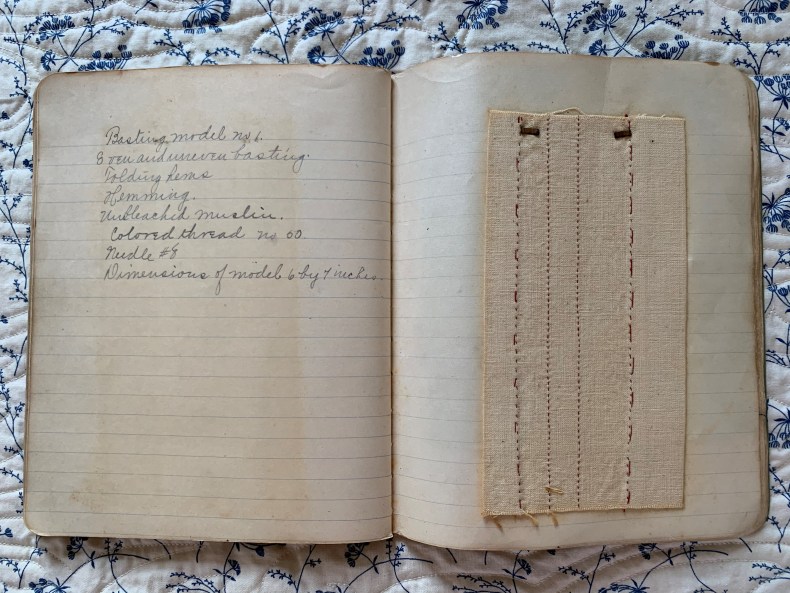 Basting model no 1.
Even and uneven basting.
Folding hems
Hemming.
Unbleached muslin.
Colored thread no 60
Needle #8
Dimensions of model 6 by 7 inches.